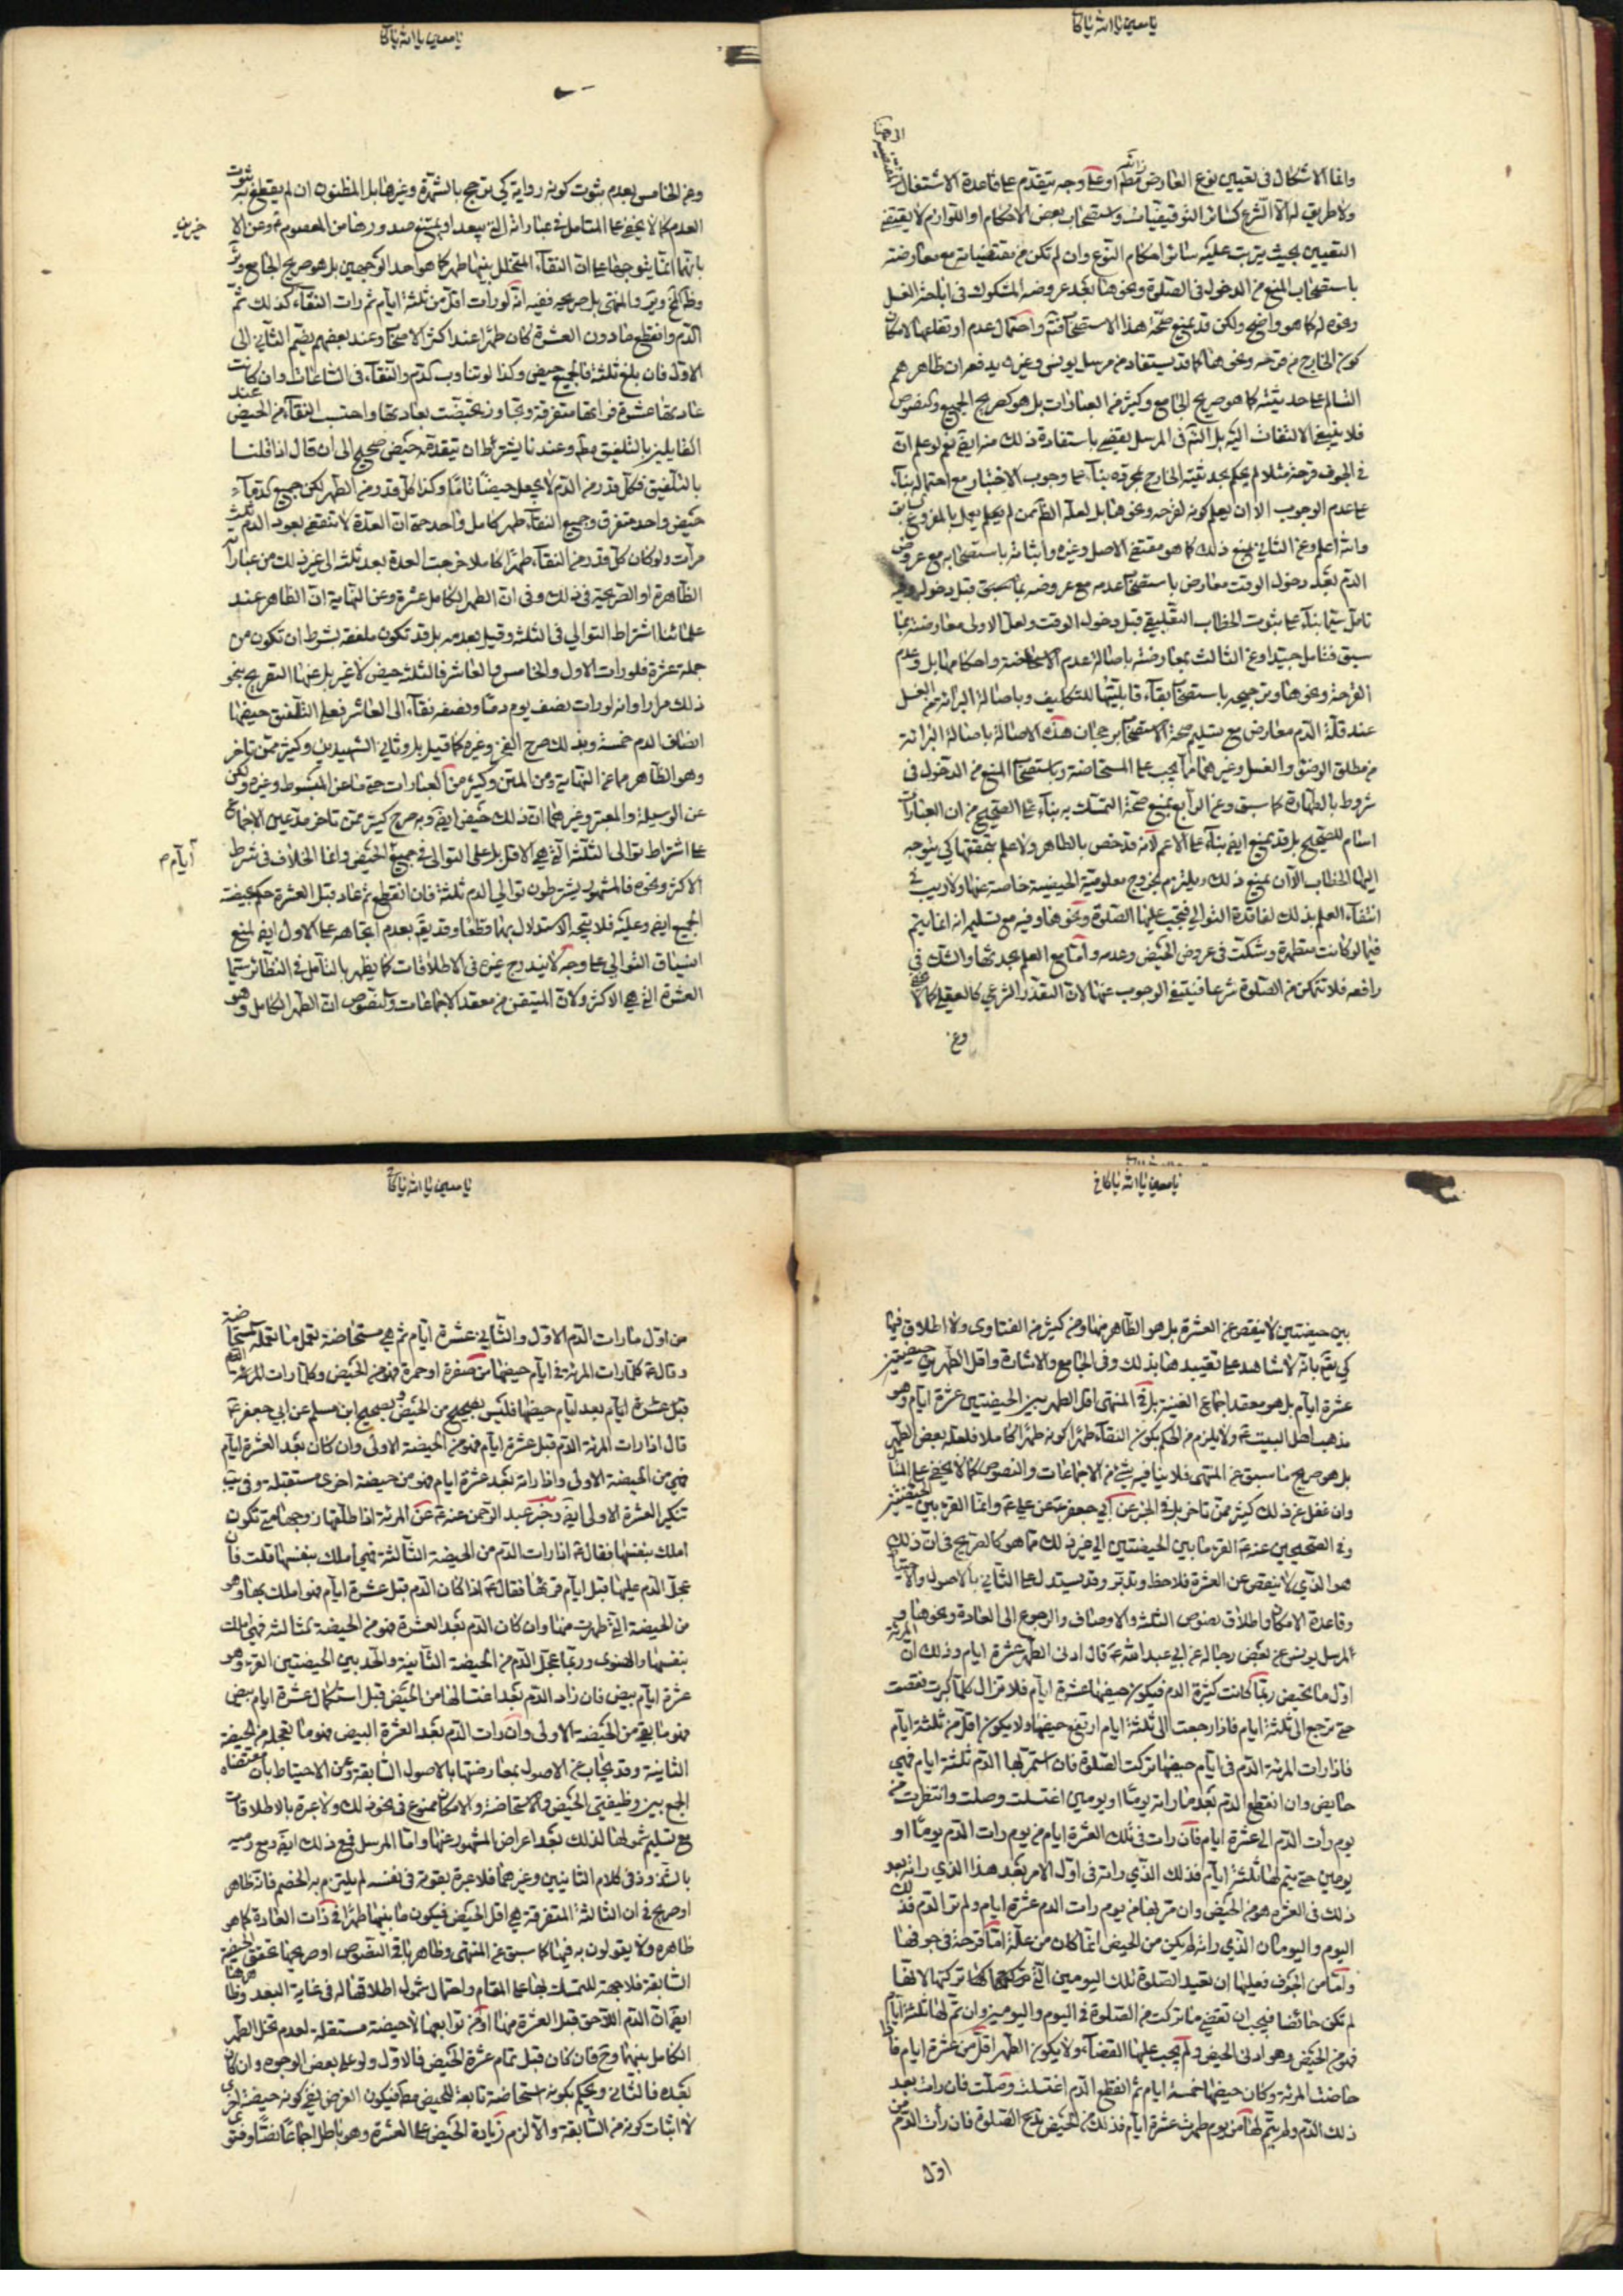 يا معين يا الله يا كافي
وانما الاشكال في تعيين نوع العارض مطم او على وجه يتقدم على قاعدة الاشتغال
ولا طريق له الا الشرع كسائر التوقيفيات واستصحاب بعض الاحكام او اللوازم لا يقتضي
التعيين بحيث يترتب عليه سائر احكام النوع وان لم تكن من مقتضياته مع معارضته
باستصحاب المنع من الدخول في الصلوة ونحوها بعد عروضه المشكوك في
كما هو واضح ولكن قد يمنع صحة هذا الاستصحاب
كون الخارج من قرحة ونحوها كما قد يستفاد من مرسل يونس وغيره يدفعه ان ظاهرهم
التسالم على حديثيته كما هو صريح الجامع وكثير من العبارات بل هو كصريح الجميع والنصوص
فلا ينبغي الالتفات اليه بل التم في المرسل يقضي باستفادة ذلك منه ايض نعم لو علم ان
في الجوف قرحة مثلا لم يحكم بحدثية الخارج بمجرده بناء على وجوب الاختبار مع احتماله بناء
على عدم الوجوب الا ان يعلم كونه لقرحة ونحوها
وعن الثاني بمنع ذلك كما هو مقتضى الاصل وغيره واثباته باستصحابه مع عروض
الدم بعد دخول الوقت معارض باستصحاب عدمه مع عروضه قبل دخوله
تامل سيما بناء على ثبوت الخطاب التعليقي قبل دخول الوقت ولعل الاولى معارضته بما
سبق فتامل جيدا وعن الثالث بمعارضته باصالة عدم الاستحاضة واحكامها بل وعدم
القرحة ونحوها وترجيحه باستصحاب بقاء قابليتها للتكليف وباصالة البرائة عن الغسل
عند قلة الدم معارض مع تسليم صحة الاستصحاب برجحان هذه الاصالة باصالة البرائة
من مطلق الوضوء والغسل وغيرهما مما يجب على المستحاضة وباستصحاب المنع من الدخول في
مشروط بالطهارة كما سبق وعن الرابع بمنع صحة التمسك به بناء على الصحيح من ان العبادات
اسام للصحيح بل قد يمنع ايض بناء على الاعم لانه قد خص بالطاهر ولا علم بتحققها كي يتوجه
اليها الخطاب الا ان يمنع ذلك ويلتزم بخروج معلومية الحيضية خاصة عنها ولا ريب في
انتفاء العلم بذلك لفاقدة التوالي فتجب عليها الصلوة ونحوها وفيه مع تسليمه انه انما يتم
فيما لو كانت متطهرة وشكت في عروض الحيض وعدمه واما مع العلم بحدثها والشك في
رافعه فلا تتمكن من الصلوة شرعا فينتفي الوجوب عنها لان التعذر الشرعي كالعقلي كما لا يخفى
وعن
يا معين يا الله يا كافي
وعن الخامس بعدم ثبوت كونه رواية كي يترجح بالشهرة وغيرها بل المظنون ان لم يقطع به ثبوت
العدم كما لا يخفى على المتامل في عباراته التي يبعد او يمتنع صدورها من المعصوم ع وعن الا
خيرين
بانهما انما يتوجهان على ان النقاء المتخلل بينهما طهر كما هو احد الوجهين بل هو صريح الجامع
بل صريحه ففيه انه لو رات اقل من ثلثة ايام ثم رات النقاء كذلك ثم
الدم وانقطع لما دون العشرة كان طهرا عند اكثر الاصحاب وعند بعضهم يضم الثاني الى
الاول فان بلغ ثلثة فالجميع حيض وكذا لو تناوب الدم والنقاء في الساعات وان كانت
عادتها عشرة فراتها متفرقة وتجاوز تحيضت بعادتها واحتسب النقاء من الحيض عند
القايلين بالتلفيق مطم وعندنا يشترط ان يتقدمه حيض صحيح الى ان قال اذا قلنا
بالتلفيق فكل قدر من الدم لا يجعل حيضا تاما وكذا كل قدر من الطهر لكن جميع الدماء
حيض واحد متفرق وجميع النقاء طهر كامل واحد حتى ان العدة لا تنقضي بعود الدم ثلث
مرات ولو كان كل قدر من النقاء طهرا كاملا خرجت العدة بعد ثلثه الى غير ذلك من عباراته
الظاهرة او الصريحة في ذلك وفي ان الطهر الكامل عشرة وعن النهاية ان الظاهر عند
علمائنا اشتراط التوالي في الثلثة وقيل بعدمه بل قد تكون ملفقة بشرط ان تكون من
جملة عشرة فلو رات الاول والخامس والعاشر فالثلثة حيض لا غير بل عنها التصريح بنحو
ذلك مرارا وانه لو رات نصف يوم دما ونصفه نقاء الى العاشر فعلى التلفيق حيضها
انصاف الدم خمسة وبذلك صرح الشيخ وغيره كما قيل بل وثاني الشهيدين وكثير ممن تاخر
وهو الظاهر مما عن النهاية ومن المتن وكثير من العبارات حتى ما عن المبسوط وغيره ولكن
عن الوسيلة والمعتبر وغيرهما ان ذلك حيض ايض وبه صرح كثير ممن تاخر مدعين الاجماع
على اشتراط توالي الثلثة التي هي الاقل بل على التوالي في جميع الحيض وانما الخلاف في شرط
ايام
الاكثر ونحوه فالمشهور يشترطون توالي الدم ثلثة فان انقطع ثم عاد قبل العشرة حكم بحيضية
الجميع ايض وعليه فلا يتجه الاستدلال بهما قطعا وقد يقم بعدم اتجاهه على الاول ايض لمنع
انسياق التوالي على وجه لا يندرج غيره في الاطلاقات كما يظهر بالتامل في النظائر سيما
العشرة التي هي الاكثر ولان المتيقن من معقد الاجماعات والنصوص ان الطهر الكامل وهو
يا معين يا الله يا كافي
بين حيضتين لا ينقص عن العشرة بل هو الظاهر منها ومن كثير من الفتاوى ولا اطلاق فيها
كي يقم بانه لا شاهد على تقييدها بذلك وفي الجامع والاشارة واقل الطهر بين حيضتين
عشرة ايام بل هو معقد اجماع الغنية بل في المنتهى اقل الطهر بين الحيضتين عشرة ايام وهو
مذهب اهل البيت ع ولا يلزم من الحكم بكون النقاء طهرا كونه طهرا كاملا فلعله بعض الطهر
بل هو صريح ما سبق عن المنتهى فلا ينافيه شيء من الاجماعات والنصوص كما لا يخفى على المتامل
وان غفل عن ذلك كثير ممن تاخر بل في الخبر عن ابي جعفر ع عن علي ع وانما القرء بين الحيضتين
وفي الصحيحين عنه ع القرء ما بين الحيضتين الى غير ذلك مما هو كالصريح في ان ذلك
هو الذي لا ينقص عن العشرة فلاحظ وتدبر وقد يستدل على الثاني بالاصول والاحتياط
وقاعدة الامكان واطلاق نصوص الثلثة والاوصاف والرجوع الى العادة ونحوها و
المرسل يونس عن بعض رجاله عن ابي عبد الله ع قال ادنى الطهر عشرة ايام وذلك ان المرئة
اول ما تحيض ربما كانت كثيرة الدم فيكون حيضها عشرة ايام فلا تزال كلما كبرت نقصت
حتى ترجع الى ثلثة ايام فاذا رجعت الى ثلثة ايام ارتفع حيضها ولا يكون اقل من ثلثة ايام
فاذا رات المرئة الدم في ايام حيضها تركت الصلوة فان استمر بها الدم ثلثة ايام فهي
حايض وان انقطع الدم بعد ما راته يوما او يومين اغتسلت وصلت وانتظرت من
يوم رات الدم الى عشرة ايام فان رات في تلك العشرة ايام من يوم رات الدم يوما او
يومين حتى يتم لها ثلثة ايام فذلك الذي راته في اول الامر بعد هذا الذي راته بعد
ذلك في العشرة هو من الحيض وان مر بها من يوم رات الدم عشرة ايام ولم تر الدم فذلك
اليوم واليومان الذي راته لم يكن من الحيض انما كان من علة اما قرحة في جوفها
واما من الجوف فعليها ان تعيد الصلوة تلك اليومين التي تركتها لانها
لم تكن حائضا فيجب ان تقضي ما تركت من الصلوة في اليوم واليومين وان تم لها ثلثة ايام
فهو من الحيض وهو ادنى الحيض ولم يجب عليها القضاء ولا يكون الطهر اقل من عشرة ايام فاذا
حاضت المرئة وكان حيضها خمسة ايام ثم انقطع الدم اغتسلت وصلت فان رات بعد
ذلك الدم ولم يتم لها من يوم طهرت عشرة ايام فذلك من الحيض تدع الصلوة فان رأت الدم من
اول
يا معين يا الله يا كافي
من اول ما رات الدم الاول والثاني عشرة ايام ثم هي مستحاضة تعمل ما تعمله المستحاضة
وقال ع كلما رات المرئة في ايام حيضها من صفرة او حمرة فهو من الحيض وكلما رات المرئة
قبل عشرة ايام بعد ايام حيضها فليس من الحيض وبصحيح ابن مسلم عن ابي جعفر ع
قال اذا رات المرئة الدم قبل عشرة ايام فهو من الحيضة الاولى وان كان بعد العشرة ايام
فهي من الحيضة الاولى واذا راته بعد عشرة ايام فهو من حيضة اخرى مستقبلة وفي يب
تنكير العشرة الاولى ايض وخبر عبد الرحمن عنه ع عن المرئة اذا طلقها زوجها متى تكون
املك بنفسها فقال ع اذا رات الدم من الحيضة الثالثة فهي املك بنفسها قلت فان
عجل الدم عليها قبل ايام قرئها فقال ع اذا كان الدم قبل عشرة ايام فهو املك بها وهو
من الحيضة التي طهرت منها وان كان الدم بعد العشرة فهو من الحيضة الثالثة فهي املك
بنفسها والرضوي وربما عجل الدم من الحيضة الثانية والحد بين الحيضتين القرء وهو
عشرة ايام بيض فان زاد الدم بعد اغتسالها من الحيض قبل استكمال عشرة ايام بيض
فهو ما بقي من الحيضة الاولى وان رات الدم بعد العشرة البيض فهو ما تعجل من الحيضة
الثانية وقد يجاب عن الاصول بمعارضتها بالاصول السابقة وعن الاحتياط بان مقتضاه
الجمع بين وظيفتي الحيض والاستحاضة والامكان ممنوع في نحو ذلك ولا عبرة بالاطلاقات
مع تسليم شمولها لذلك بعد اعراض المشهور عنها واما المرسل فمع ذلك ايض ومع رميه
بالشذوذ في كلام الثانيين وغيرهما فلا عبرة بقوته في نفسه لم يلتزم به الخصم فانه ظاهر
او صريح في ان الثلاثة المتفرقة هي اقل الحيض فيكون ما بينها طهرا في ذات العادة كما هو
ظاهره ولا يقولون به فيها كما سبق عن المنتهى وظاهر باقي النصوص او صريحها تحقق الحيضة
السابقة فلا جهة للتمسك بها على المقام واحتمال شمول اطلاقها له في غاية البعد وظاهرها
ايض ان الدم اللاحق قبل العشرة منها او من توابعها لا حيضة مستقلة لعدم تخلل الطهر
الكامل بينهما وح فان كان قبل تمام عشرة الحيض فالاول ولو على بعض الوجوه وان كان
بعده فالثاني ويحكم بكونه استحاضة تابعة للحيض مطم فيكون الغرض نفي كونه حيضة اخرى
لا اثبات كونه من السابقة والا لزم زيادة الحيض على العشرة وهو باطل اجماعا نصا وفتوى